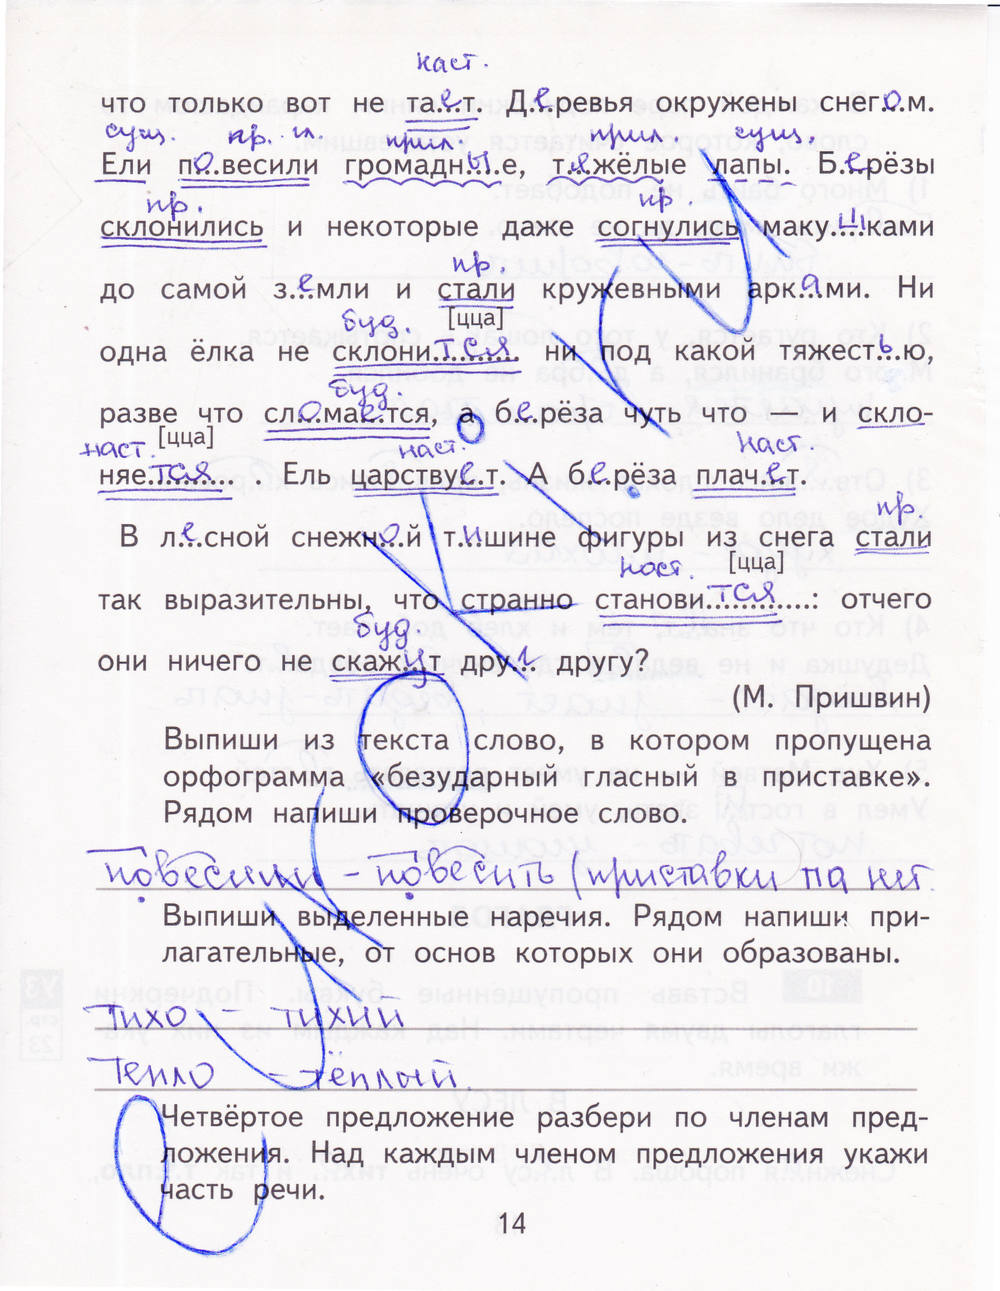 наст.
что только вот не та..е.т. Д..е.ревья окружены снег..о.м.
сущ. пр. гл. прил. прил. сущ.
Ели п..о.весили громадн..ы.е, т..я.жёлые лапы. Б..е.рёзы
пр. пр.
склонились и некоторые даже согнулись маку..ш..ками
пр.
до самой з..е.мли и стали кружевными арк..а.ми. Ни
буд. [цца]
одна ёлка не склони..тся.. ни под какой тяжест..ь.ю,
буд.
разве что сл..о.ма..е.тся, а б..е.рёза чуть что — и скло-
наст. [цца] наст. наст.
няе..тся.. . Ель царству..е.т. А б..е.рёза плач..е.т
пр.
В л..е.сной снежн..о.й т..и.шине фигуры из снега стали
наст. [цца]
так выразительны, что странно станови..тся..: отчего
буд.
они ничего не скаж..у.т дру..г. другу?
(М. Пришвин)
Выпиши из текста слово, в котором пропущена
орфограмма «безударный гласный в приставке».
Рядом напиши проверочное слово.
повесили – повесить (приставки па нет
Выпиши выделенные наречия. Рядом напиши при-
лагательные, от основ которых они образованы.
тихо – тихий
тепло – тёплый
Четвёртое предложение разбери по членам пред-
ложения. Над каждым членом предложения укажи
часть речи.
14